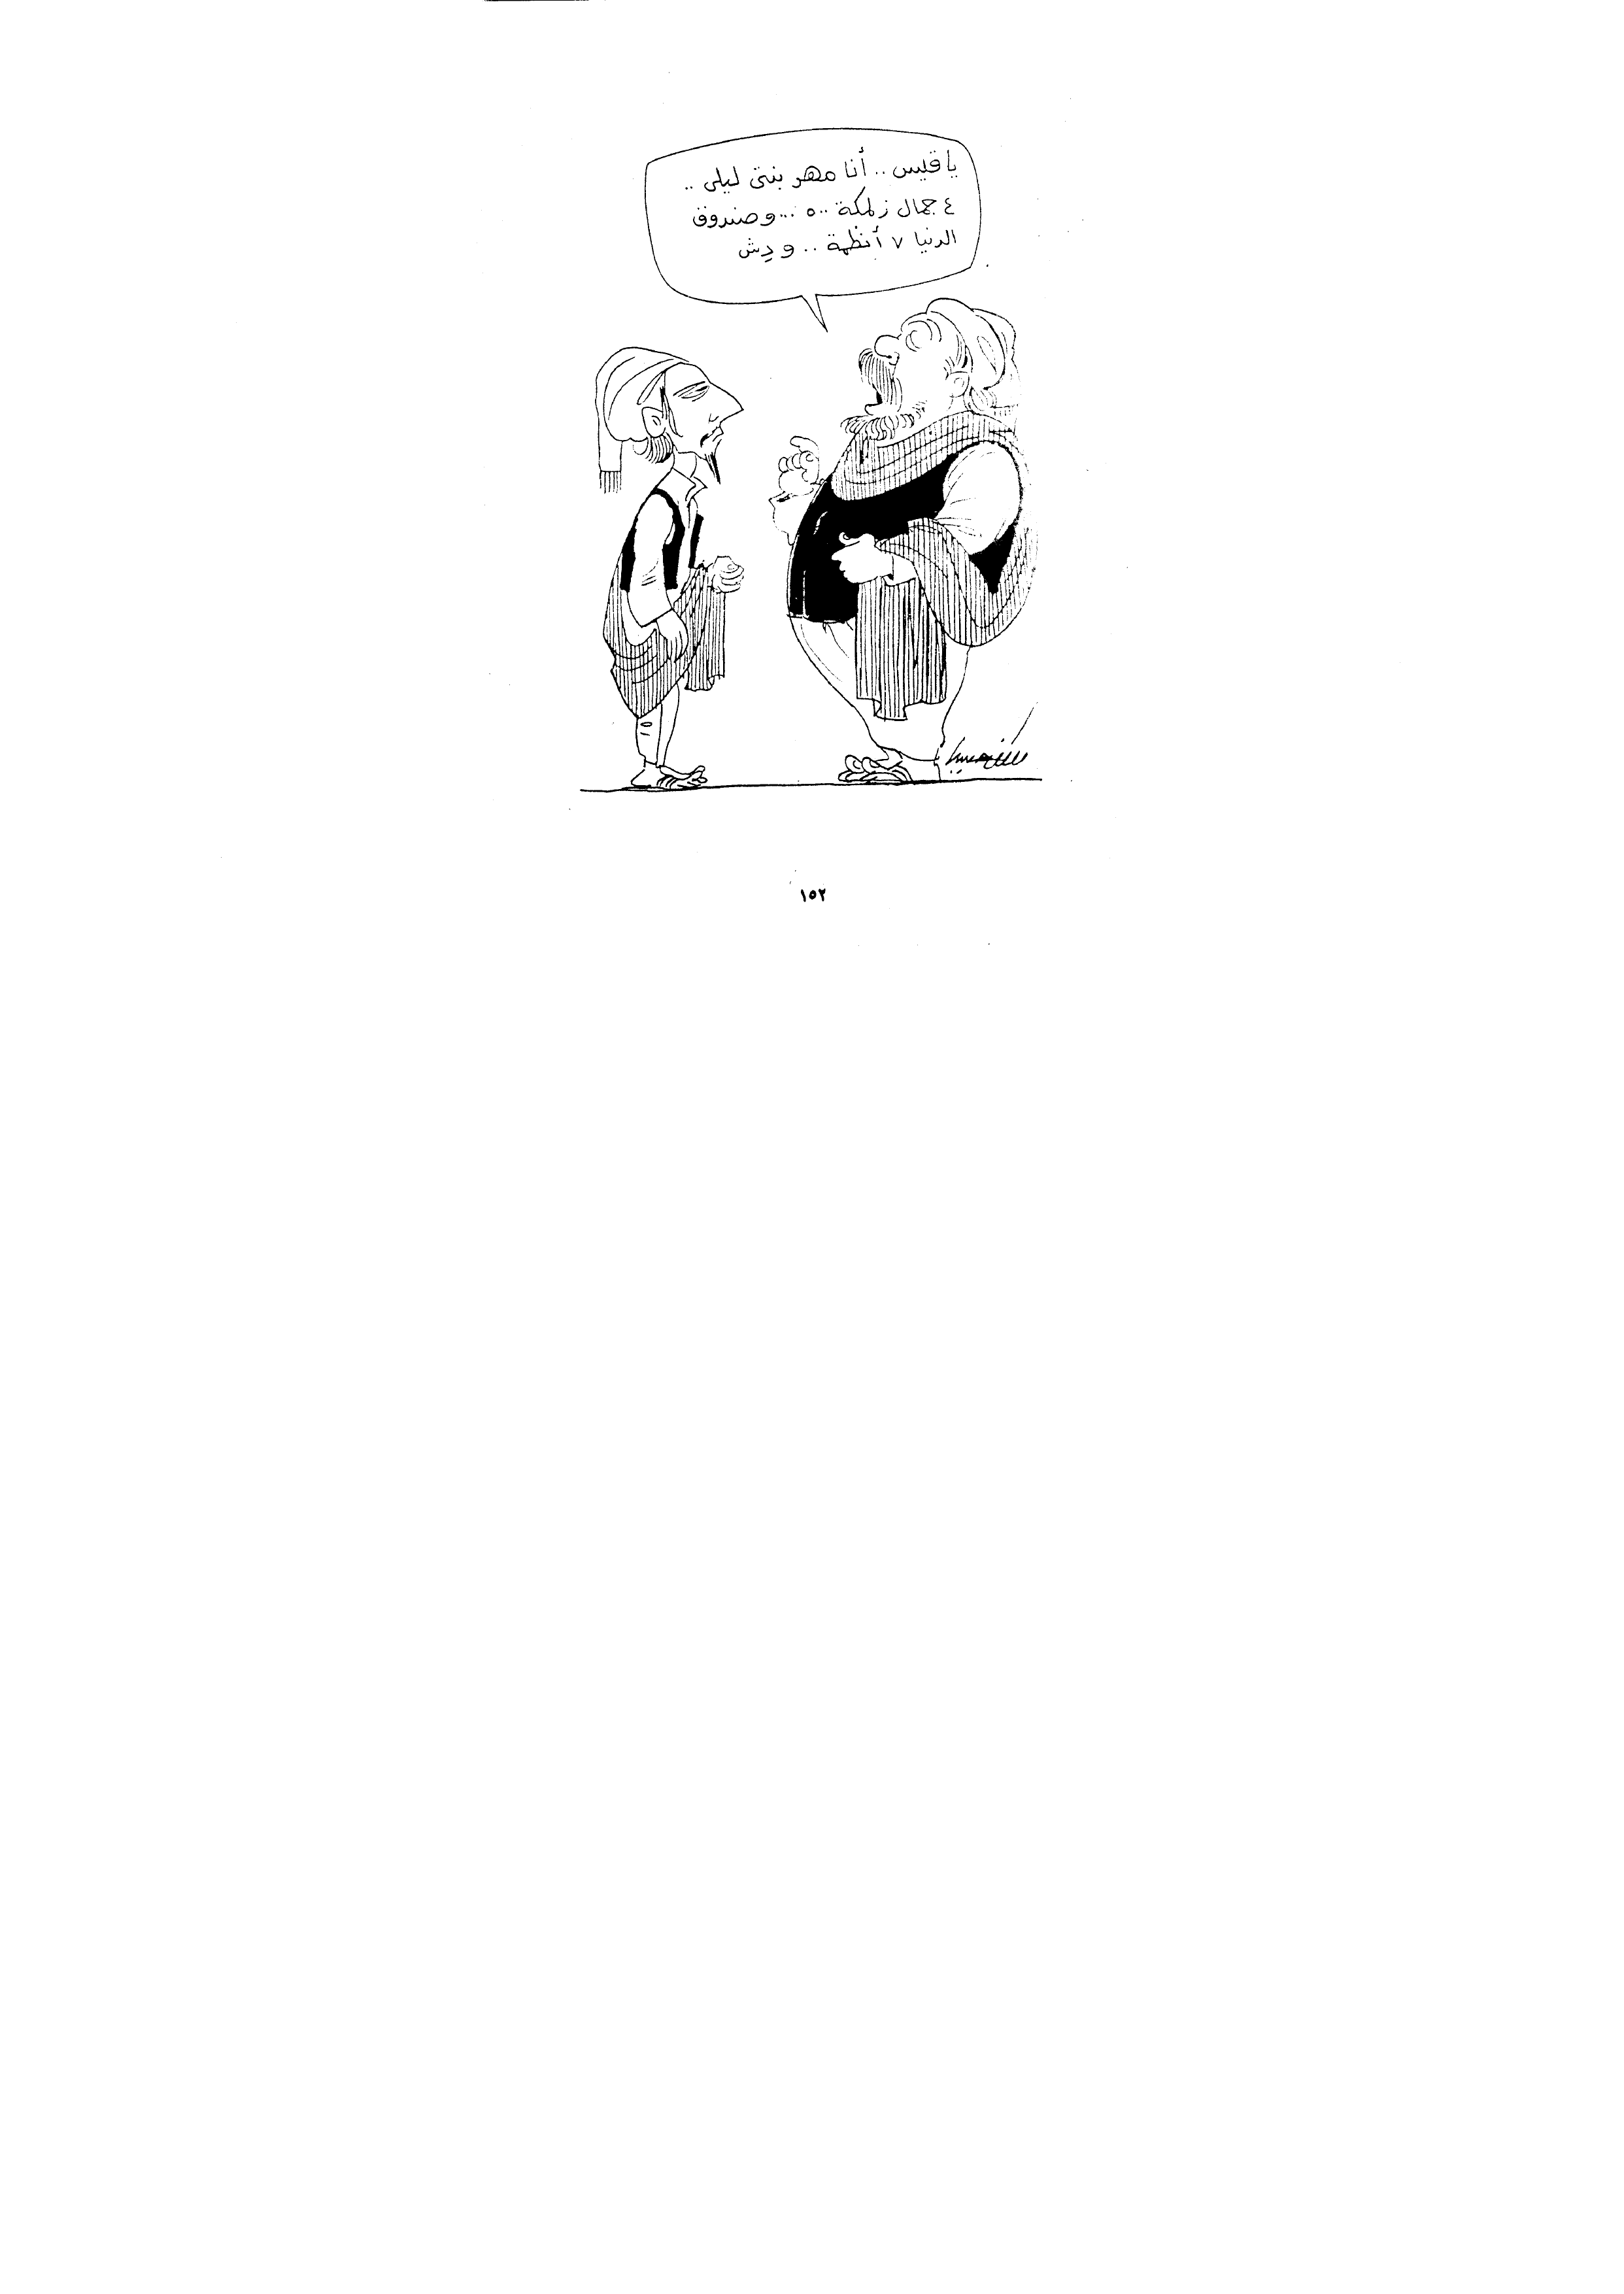 يا قيس .. أنا مهر بنتى ليلى ..
٤ جمال زلمكة ٥٠٠ .. وصندوق
الدنيا ٧ أنظمة .. ودِش
١٥٢